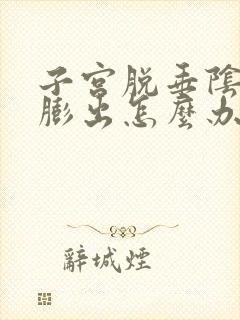 子宮脱垂陰
膨出怎麼办
辭城煙